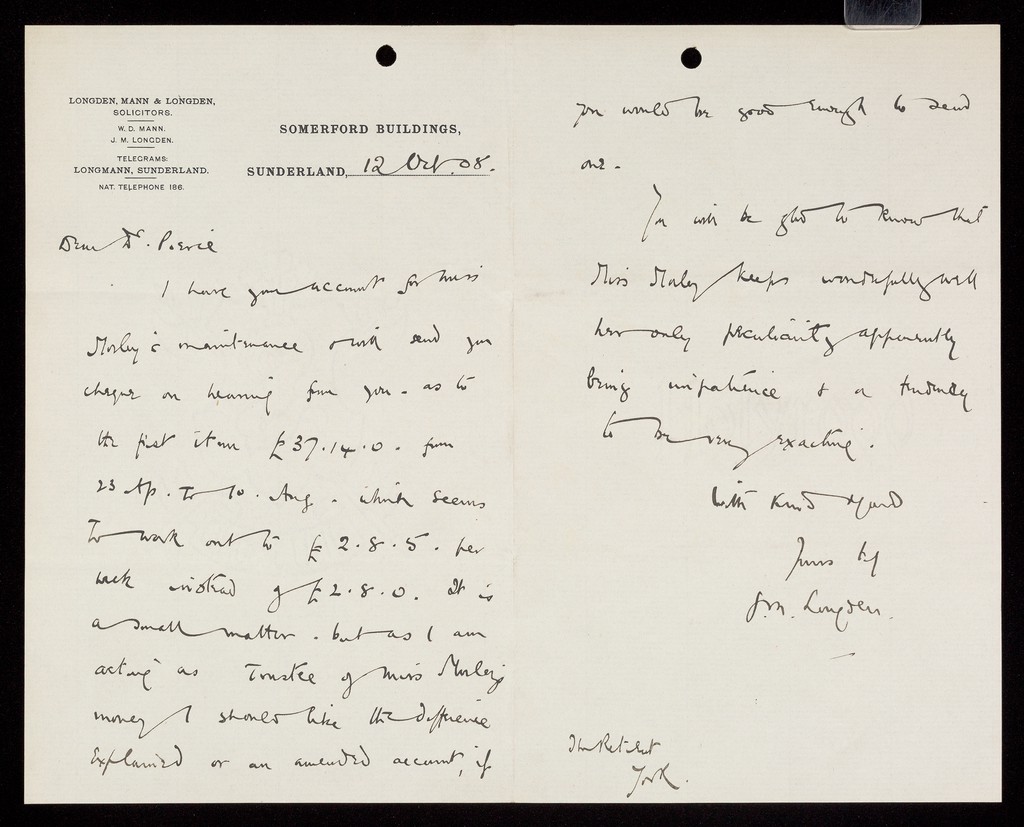 LONGDEN, MANN & LONGDEN,
SOLICITORS.
W. D. MANN.
J. M. LONGDEN.
TELEGRAMS:
LONGMANN, SUNDERLAND.
NAT. TELEPHONE 186.
SOMERFORD BUILDINGS,
SUNDERLAND, 12 Oct. 08.
Dear Dr. Pierce
I have your account for Miss
Morley's maintenance & will send you
cheque on hearing from you - as to
the first item £37.14.0. from
23 Ap. to 10. Aug. which seems
to work out to £2.8.5. per
week instead of £2.8.0. It is
a small matter. but as I am
acting as Trustee of Miss Morley's
money I should like the difference
explained or an amended account, if
you would be good enough to send
one.
You will be glad to know that
Miss Morley keeps wonderfully well
her only peculiarity apparently
being impatience & a tendency
to be very exacting.
With kind regard
Yours
J.M. Longden.
The Retreat
York.